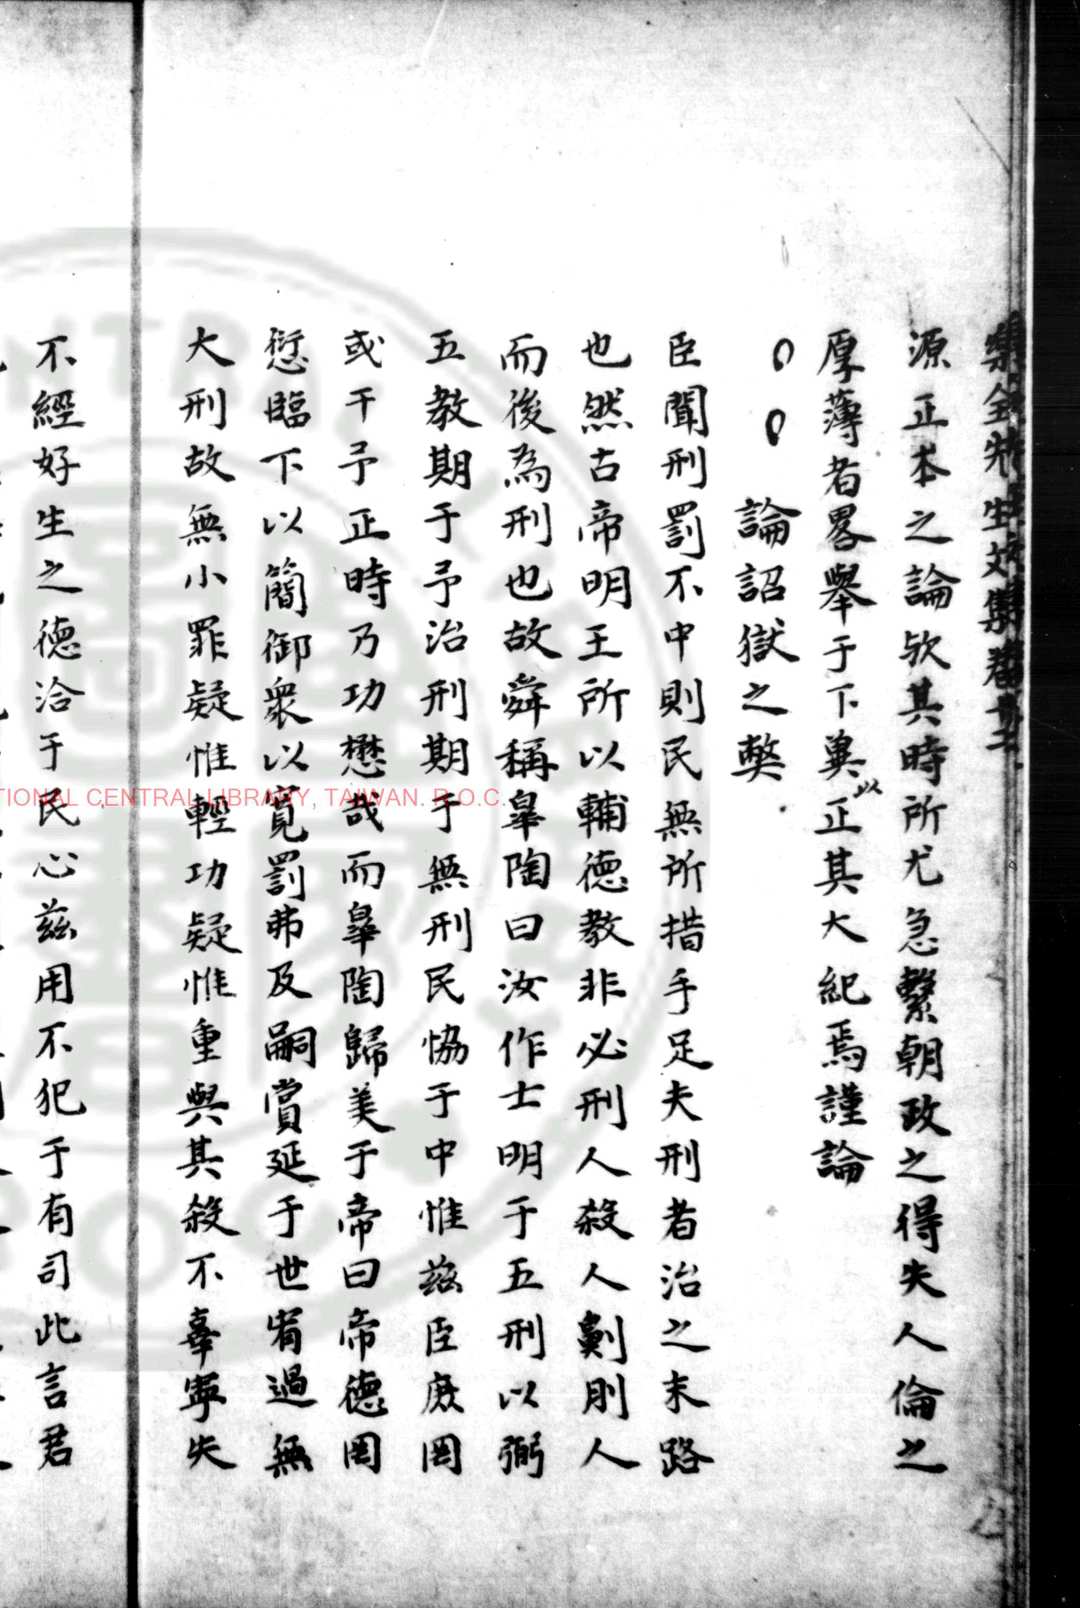 源正本之論欤其時所尤急繫朝政之得失人倫之
厚薄者畧舉于下冀以正其大紀焉謹論
論詔獄之獘
臣聞刑罰不中則民無所措手足夫刑者治之末路
也然古帝明王所以輔德教非必刑人殺人劓刖人
而後為刑也故舜稱皐陶曰汝作士明于五刑以弼
五教期于予治刑期于無刑民恊于中惟兹臣庶罔
或干予正時乃功懋哉而皐陶歸美于帝曰帝德罔
愆臨下以簡御衆以寛罰弗及嗣賞延于世宥過無
大刑故無小罪疑惟輕功疑惟重與其殺不辜寧失
不經好生之德洽于民心兹用不犯于有司此言君
NATIONAL CENTRAL LIBRARY, TAIWAN. R.O.C.